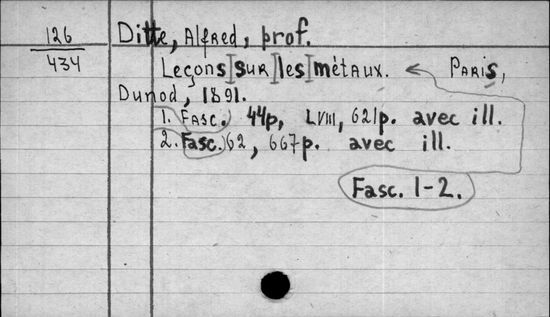 126
434
Ditte, Alfred, prof.
Leçons sur les métaux. Paris,
Dunod, 1891.
1. Fasc. 44p, LVIII, 621p. avec ill.
2. Fasc. 62, 667p. avec ill.
Fasc. 1-2.